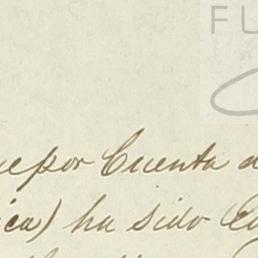 FU
que por Cuenta d
ica) ha sido